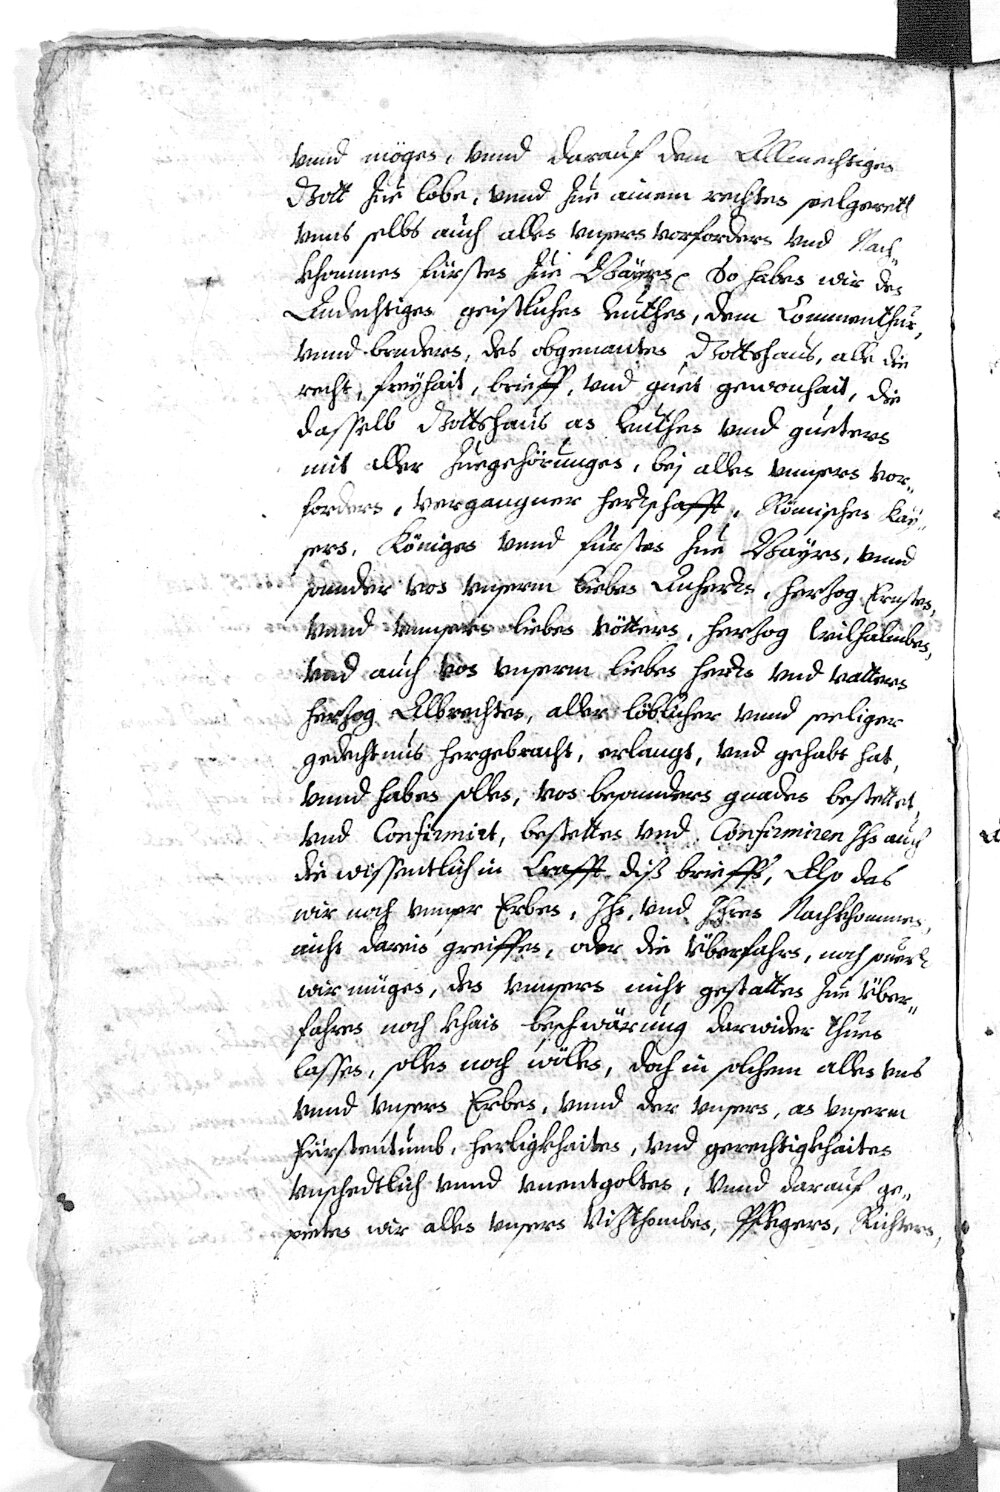 vnnd mögen, vnnd darauf dem Allmechtigen
Gott zue lobe, vnnd zue ainem rechten seelgerett
vnns selbs auch allen vnsern vorfordern vnd Nach„
khommen fürsten zue Bayrn, So haben wir den
Andechtigen geistlichen leuthen, dem Commenthur,
vnnd brudern, des obgenanten Gottshaus, alle die
recht, freyhait, brieff, vnd guet gewonhait, die
dasselb Gottshaus an leuthen vnnd guetern
mit aller zuegehörungen, bej allen vnnsern vor„
fordern, vergangner herrschafft, Römischen Kay„
sern, Königen vnnd fürsten zue Bayrn, vnnd
sonnder von vnserm lieben Anherrn, herzog Ernsten,
vnnd vnnserm lieben vöttern, herzog Wilhalmben,
vnd auch von vnserm lieben herrn vnd vattern
herzog Albrechten, aller löblicher vnnd seeliger
gedechtnus hergebracht, erlangt, vnd gehabt hat,
vnnd haben sollen, von besonndern gnaden bestettet,
vnd Confirmirt, bestetten vnd Confirmiren Ihn auch
die wissentlich in Crafft diß brieffs, Also das
wir noch vnnser Erben, Ihn, vnd Ihren Nachkhommen,
nicht darein greiffen, oder die überfahrn, noch souerr
wir mügen, den vnnsern nicht gestatten zue über„
fahren noch khain beschwärung darwider thuen
lassen, sollen noch wöllen, doch in solchem allen vns
vnnd vnsern Erben, vnnd den vnsern, an vnserm
fürstentumb, herligkhaiten, vnd gerechtigkhaiten
vnschedtlich vnnd vnentgolten, Vnnd darauf ge„
pieten wir allen vnsern Visthomben, Pflegern, Richtern,